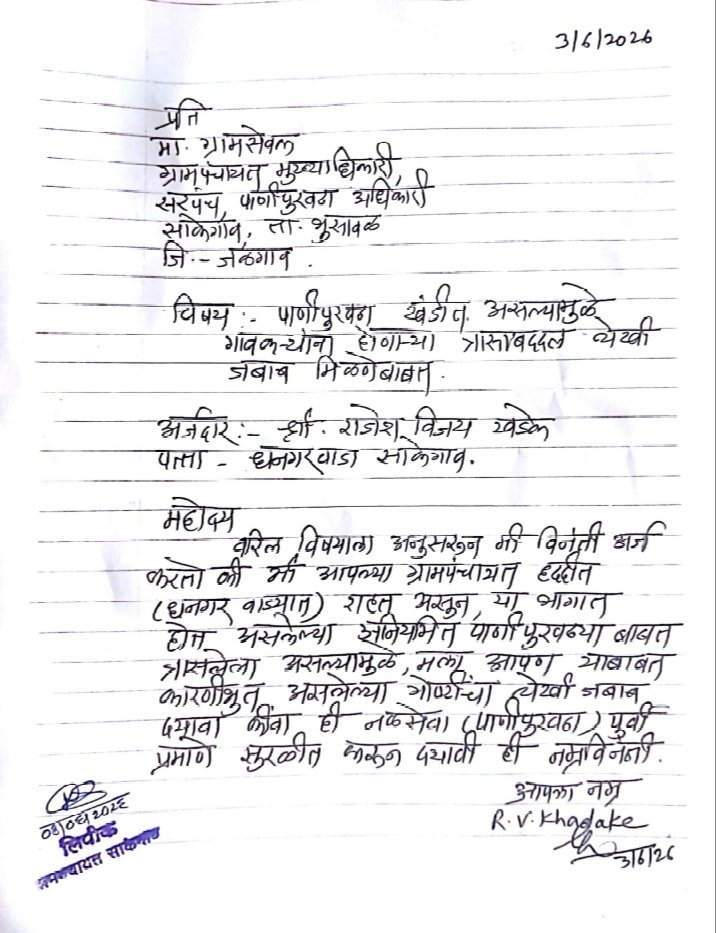 3/6/2026
प्रति
मा. ग्रामसेवक
ग्रामपंचायत मुख्याधिकारी,
सरपंच, पाणीपुरवठा अधिकारी
साकेगाव, ता. भुसावळ
जि:- जळगाव.
विषय:- पाणीपुरवठा खंडीत असल्यामुळे
गावकऱ्यांना होणाऱ्या त्रासाबददल लेखी
जबाब मिळणेबाबत.
अर्जदार:- श्री. राजेश विजय खडके
पत्ता - धनगरवाडा साकेगाव.
महोदय
वरिल विषयाला अनुसरून मी विनंती अर्ज
करतो की मी आपल्या ग्रामपंचायत हददीत
(धनगर वाड्यात) राहत असुन, या भागात
होत असलेल्या अनियमित पाणीपुरवठ्या बाबत
त्रासलेला असल्यामुळे, मला आपण याबाबत
कारणीभुत असलेल्या गोष्टींचा लेखी जबाब
दयावा कींवा ही नळसेवा (पाणीपुरवठा) पुर्वी
प्रमाणे सुरळीत करून दयावी ही नम्रविनंती.
आपला नम्र
R.V. Khadake
3/6/26
०३/०६/२०२६
लिपीक
ग्रामपंचायत साकेगाव